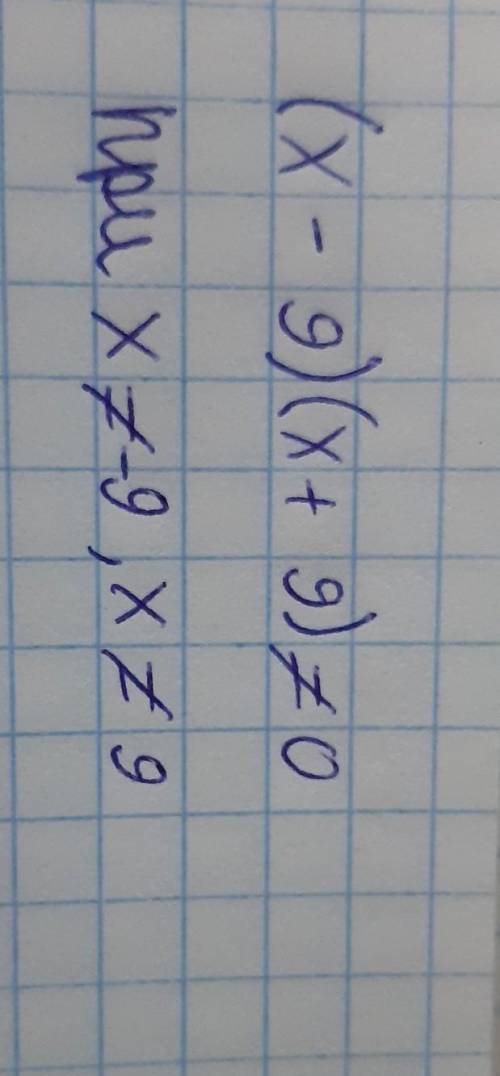 (x - 9)(x + 9) ≠ 0
при x ≠ -9, x ≠ 9